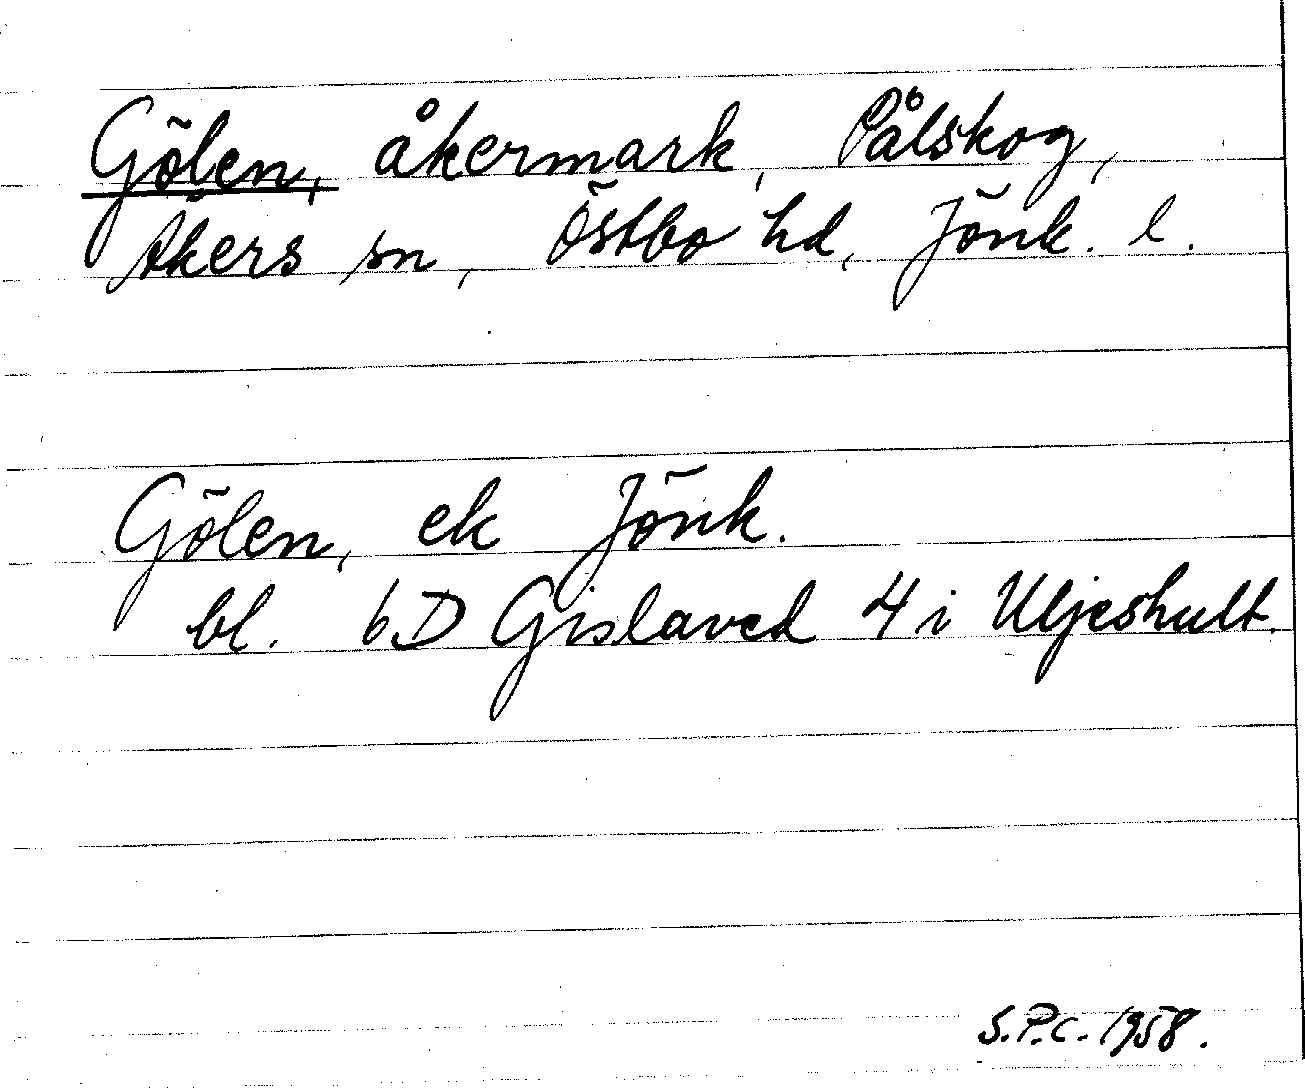 Gölen, åkermark, Pålskog,
Åkers sn, Östbo hd, Jönk. l.
Gölen, ek Jönk.
bl. 6D Gislaved 4 i Uljeshult.
S.P.C. 1958.